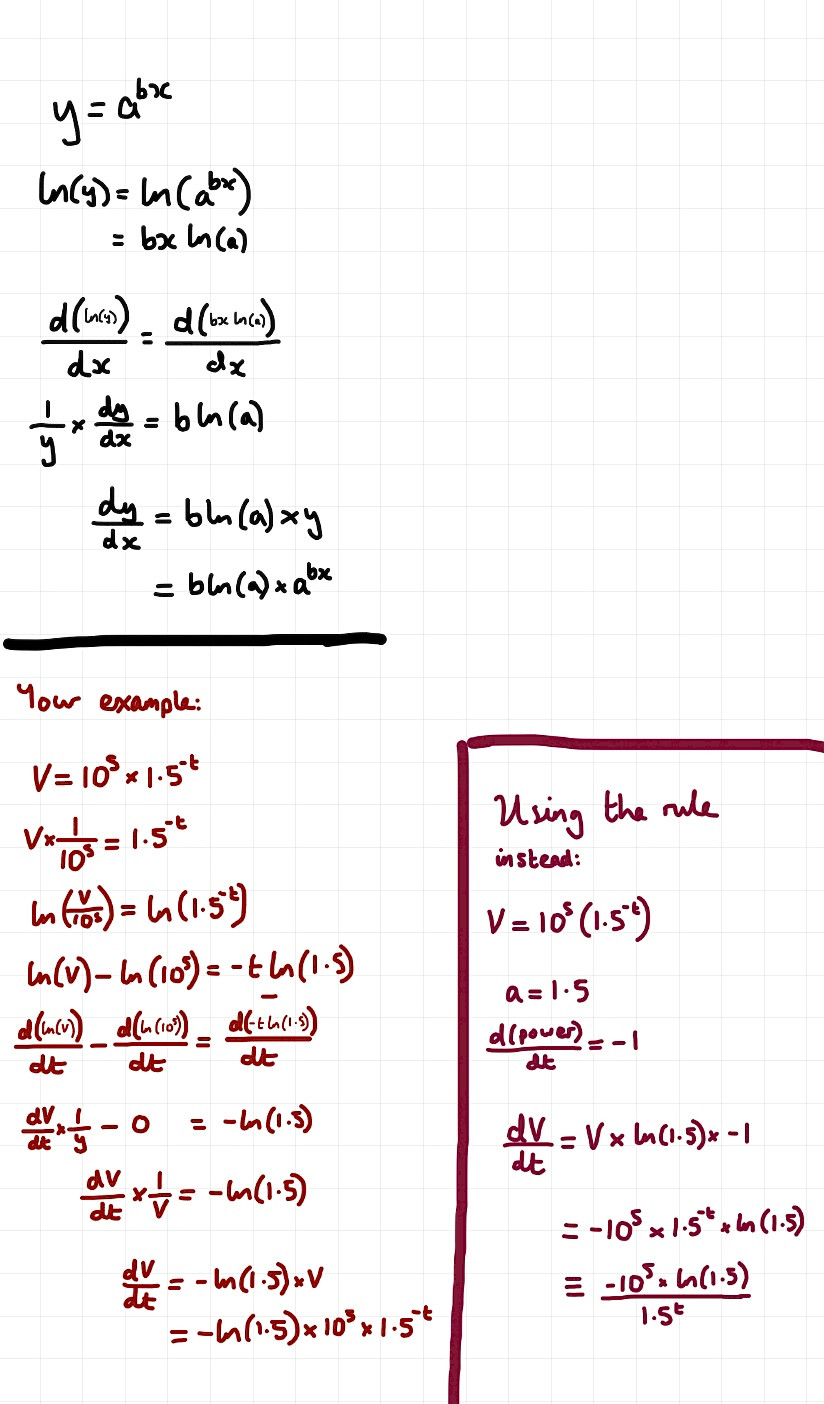 y = a^{bx}
ln(y) = ln(a^{bx})
= bx ln(a)
\frac{d(ln(y))}{dx} = \frac{d(bx ln(a))}{dx}
\frac{1}{y} × \frac{dy}{dx} = b ln(a)
\frac{dy}{dx} = b ln(a) × y
= b ln(a) × a^{bx}
Your example:
V = 10^5 × 1.5^{-t}
V × \frac{1}{10^5} = 1.5^{-t}
ln(\frac{V}{10^5}) = ln(1.5^{-t})
ln(V) - ln(10^5) = -t ln(1.5)
\frac{d(ln(V))}{dt} - \frac{d(ln(10^5))}{dt} = \frac{d(-t ln(1.5))}{dt}
\frac{dV}{dt} × \frac{1}{y} - 0 = -ln(1.5)
\frac{dV}{dt} × \frac{1}{V} = -ln(1.5)
\frac{dV}{dt} = -ln(1.5) × V
= -ln(1.5) × 10^5 × 1.5^{-t}
Using the rule
instead:
V = 10^5 (1.5^{-t})
a = 1.5
\frac{d(power)}{dt} = -1
\frac{dV}{dt} = V × ln(1.5) × -1
= -10^5 × 1.5^{-t} × ln(1.5)
≡ \frac{-10^5 × ln(1.5)}{1.5^t}